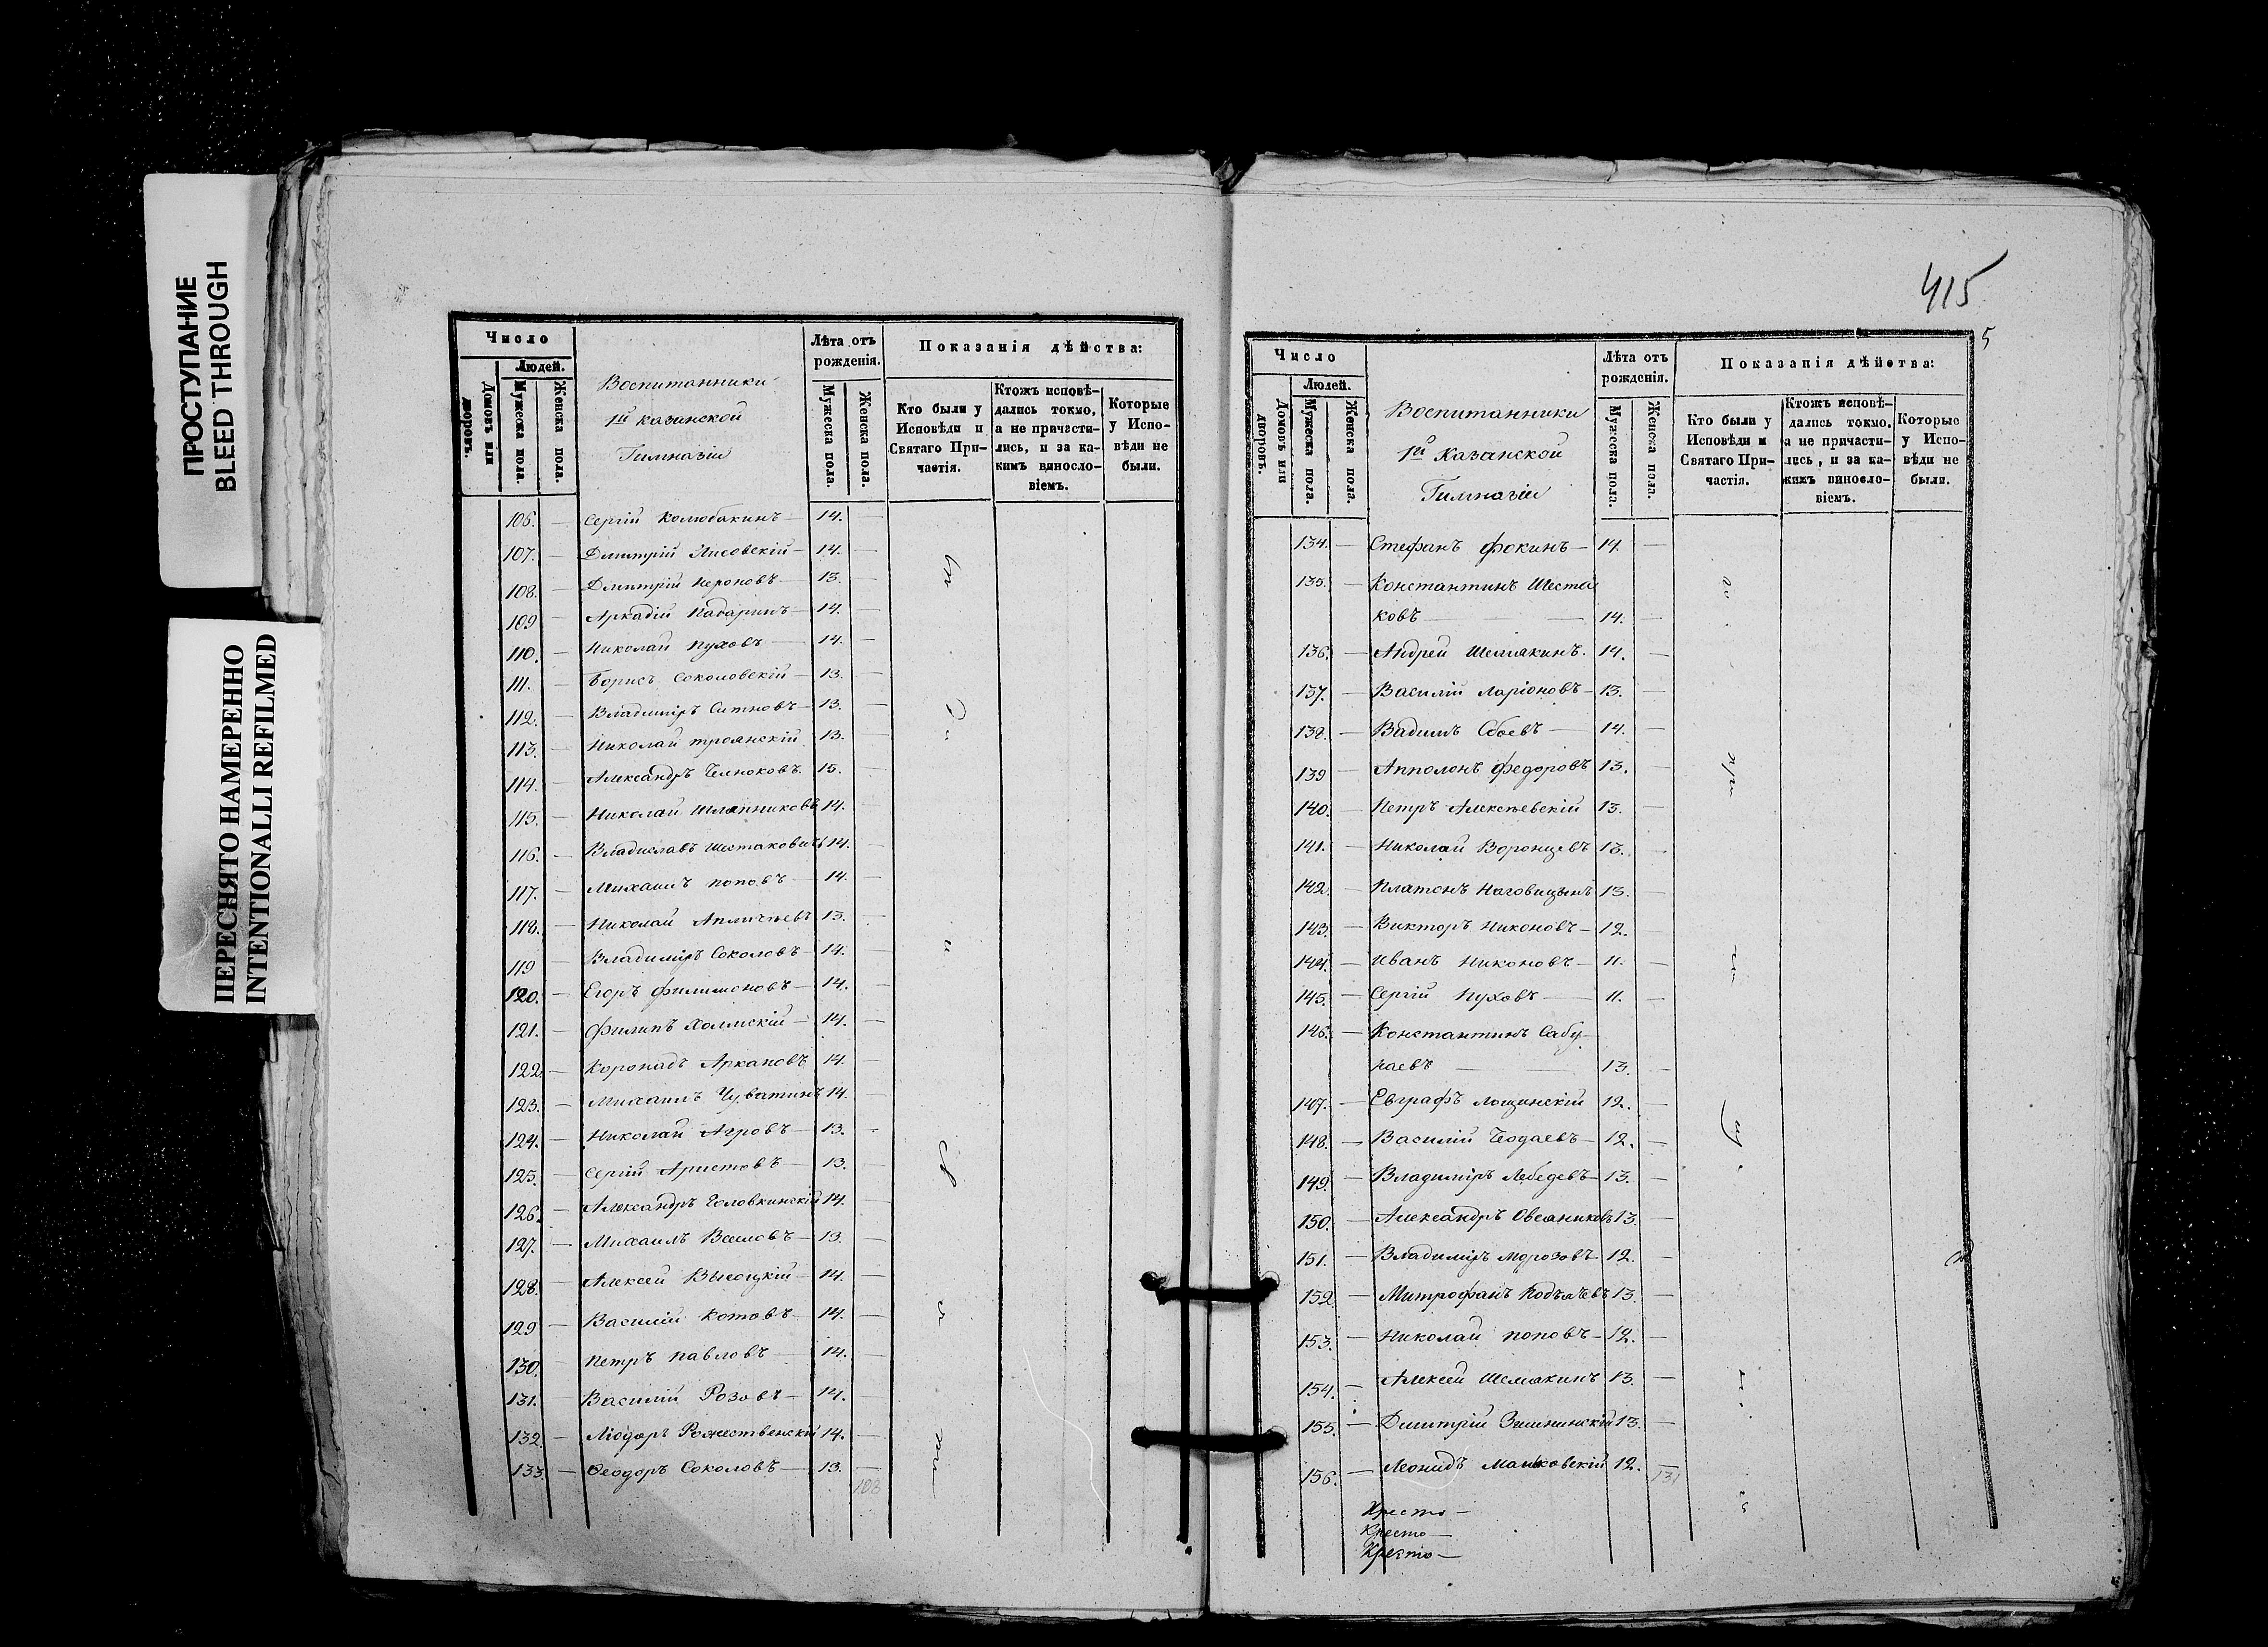 ПРОСТУПАНИЕ
BLEED THROUGH
ПЕРЕСНЯТО НАМЕРЕННО
INTENTIONALLI REFILMED
Число
Людей.
Домовъ или дворовъ.
Мужеска пола.
Женска пола.
Воспитанники
1й Казанской
Гимназіи
Лѣта отъ рожденія.
Мужеска пола.
Женска пола.
Показанія дѣйства:
Кто были у Исповѣди и Святаго Причастія.
Ктожъ исповѣдались токмо, а не причастились, и за какимъ винословіемъ.
Которые у Исповѣди не были.
106. — Сергій Колюбакинъ — 14. —
107. — Дмитрій Лисовскій — 14. —
108. — Дмитрій Нероновъ 13. —
109 — Аркадій 14. —
110. — Николай Пуховъ — 14. —
111. — Борисъ Соколовскій — 13. —
112. — Владиміръ Ситновъ — 13. —
113. — Николай Троянскій 13. —
114. — Александръ 15. —
115. — Николай Шляпниковъ 14. —
116. — Владиславъ Шестаковичъ 14. —
117. — Михаилъ Поповъ — 14. —
118. — Николай 13. —
119 — Владиміръ Соколовъ — 14. —
120. — Егоръ Филимоновъ — 14. —
121. — Филипъ Холмскій — 14. —
122. — Коронадъ 14. —
123. — Михаилъ Чуватинъ 14. —
124. — Николай 13. —
125. — Сергій Аристовъ — 13. —
126. — Александръ Головкинскій 14. —
127. — Михаилъ 13. —
128. — Алексей Высоцкій — 14. —
129 — Василій Котовъ 14. —
130. — Петръ Павловъ — 14. —
131. — Василій Розовъ — 14. —
132. — Ліодоръ Рожественскій 14. —
133. — Ѳеодоръ Соколовъ — 13. —
108
415
5
Число
Людей.
Домовъ или дворовъ.
Мужеска пола.
Женска пола.
Воспитанники
1й Казанской
Гимназіи
Лѣта отъ рожденія.
Мужеска пола.
Женска пола.
Показанія дѣйства:
Кто были у Исповѣди и Святаго Причастія.
Ктожъ исповѣдались токмо, а не причастились, и за какимъ винословіемъ.
Которые у Исповѣди не были.
134. — Стефанъ Фокинъ — 14. —
135. — Константинъ Шеста
ковъ — — 14. —
136. — Андрей Шемякинъ. 14. —
137. — Василій Ларіоновъ — 13. —
138. — Вадимъ Сбоевъ — 14. —
139 — Апполонъ Федоровъ 13. —
140. — Петръ Алексѣевскій 13. —
141. — Николай Воронцевъ 13. —
142. — Платонъ Наговицынъ 13. —
143. — Викторъ Никоновъ — 12. —
144. — Иванъ Никоновъ — 11. —
145. — Сергій Пуховъ — 11. —
146. — Константинъ Сабу
раевъ — — 13. —
147. — Евграфъ Лощинскій 12. —
148. — Василій 12. —
149. — Владиміръ Лебедевъ — 13. —
150. — Александръ Овсяниковъ 13. —
151. — Владиміръ Морозовъ 12. —
152. — Митрофанъ Подъячевъ 13. —
153. — Николай Поповъ — 12. —
154. — Алексей Шемякинъ 13. —
155. — Дмитрій 13. —
156. — Леонидъ Маньковскій 12. —
131
Кресто —
Кресто —
Кресто —